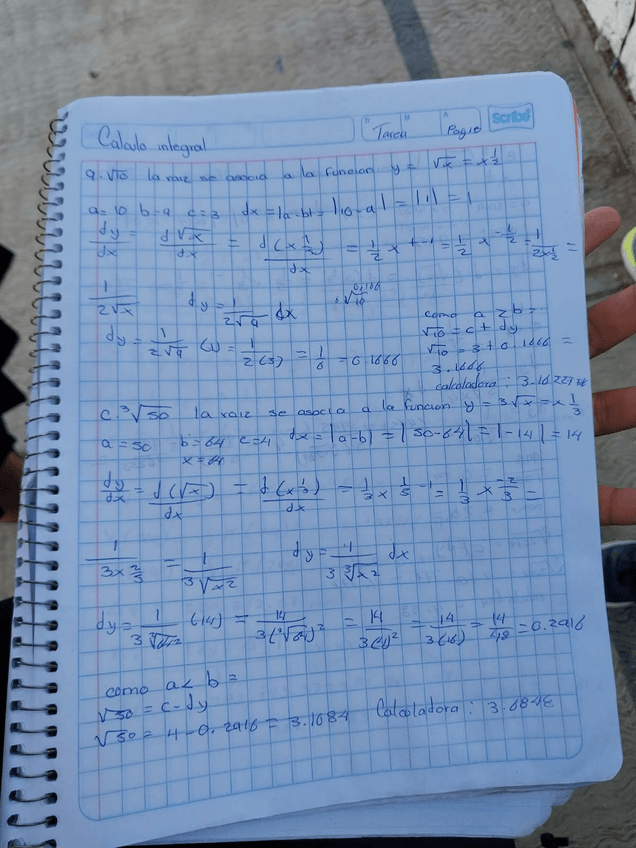 Scribe
Calculo integral "Tarea" Pagio
a. √10 la raiz se asocia a la funcion y = √x = x 1/2
a=10 b=9 c=3 dx = |a-b| = |10-9| = |1| = 1
dy/dx = d√x/dx = d(x 1/2)/dx = 1/2 x = 1/2 x -1/2 = 1/2x 1/2 =
1/2√x dy = 1/2√9 dx
dy = 1/2√9 (1) = 1/2(3) = 1/6 = 0.1666
como a > b =
√10 = c + dy
√10 = 3 + 0.1666 =
3.1666
calculadora : 3.16227
c. ³√50 la raiz se asocia a la funcion y = 3√x = x 1/3
a=50 b=64 c=4 dx = |a-b| = |50-64| = |-14| = 14
x=64
dy/dx = d(√x)/dx = d(x 1/3)/dx = 1/3 x 1/3 -1 = 1/3 x -2/3 =
1/3x 2/3 = 1/3√x2 dy = 1/3 ³√x2 dx
dy = 1/3 ³√642 (14) = 14/3(³√64)² = 14/3(4)² = 14/3(16) = 14/48 = 0.2916
como a < b =
√50 = c - dy
√50 = 4 - 0.2916 = 3.1684 Calculadora : 3.6848